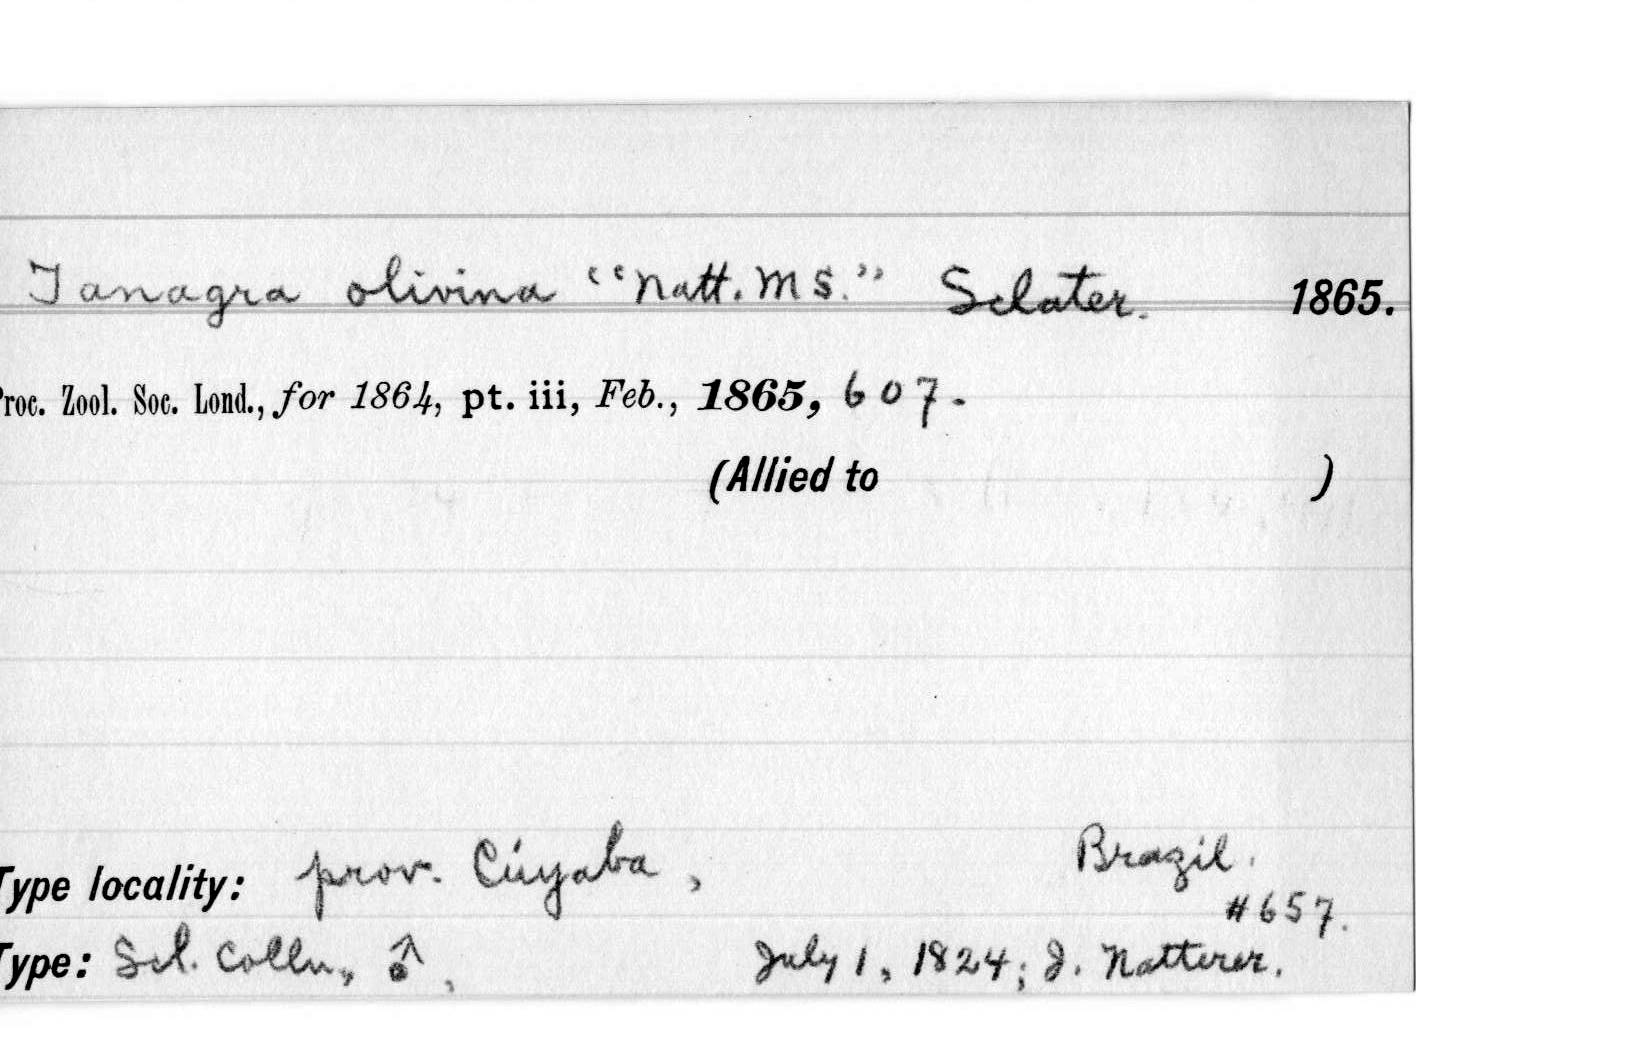 Tanagra olivina "Natt. MS." Sclater. 1865.
Proc. Zool. Soc. Lond., for 1864, pt. iii, Feb., 1865, 607.
(Allied to )
Type locality: prov. Cúyaba, Brazil.
#657.
Type: Scl. Colln., ♂, July 1, 1824; J. Natterer.